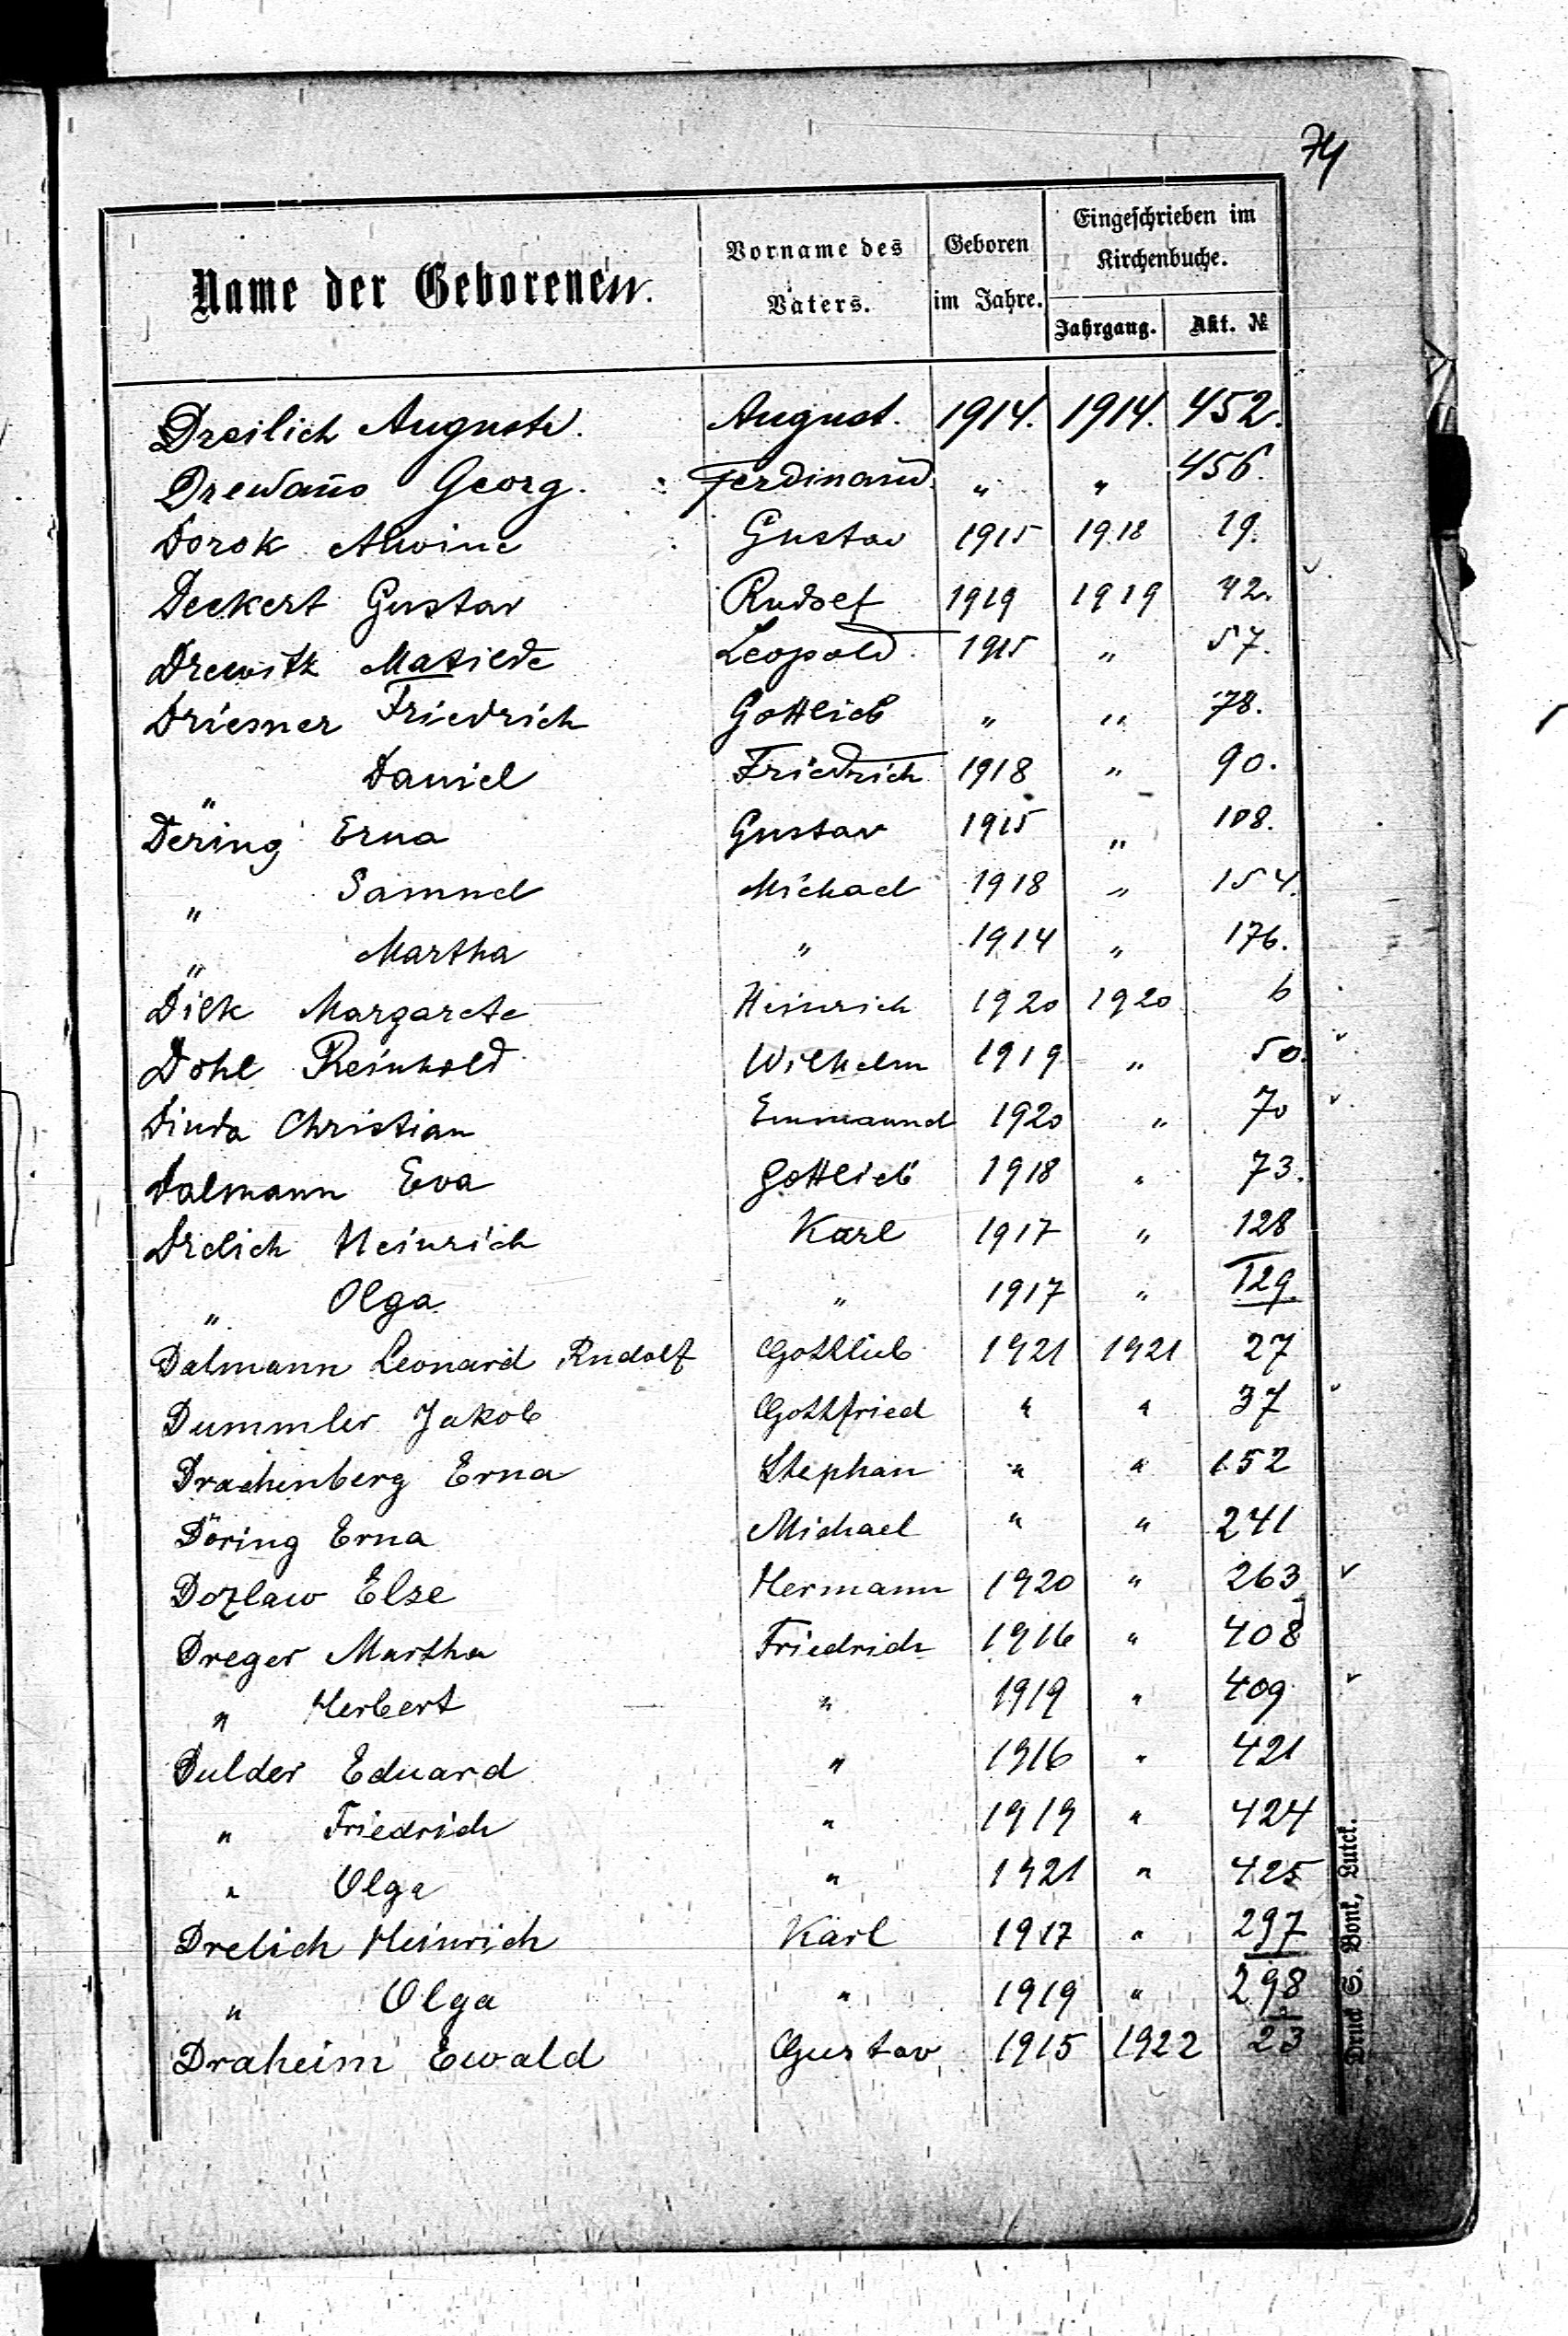 74
Name der Geborenen. Vorname des Vaters. Geboren im Jahre. Eingeschrieben im Kirchenbuche.
Jahrgang. Akt. №
Dreilich Auguste. August. 1914. 1914. 452.
Georg. Ferdinand. " " 456.
Dorok Alwine Gustav 1915 1918 19.
Deckert Gustav Rudolf 1919 1919 42.
Drewitz Matilde Leopold. 1915 " 57.
Driesner Friedrich Gottlieb " " 78.
" Daniel Friedrich 1918 " 90.
Dering Erna Gustav 1915 " 108.
" Samuel Michael 1918 " 154.
" Martha " 1914 " 176.
Dilk Margarete Heinrich 1920 1920 6
Dohl Reinhold Wilhelm 1919 " 50.
Dinda Christian Emmanuel 1920 " 70
Dalmann Eva Gottlieb 1918 " 73.
Drelich Heinrich Karl 1917 " 128
" Olga " 1917 " 129.
Dalmann Leonard Rudolf Gottlieb 1921 1921 27
Dummler Jakob Gottfried " " 37
Drachenberg Erna Stephan " " 152
Döring Erna Michael " " 241
Dozlaw Else Hermann 1920 " 263
Dreger Martha Friedrich 1916 " 408
" Herbert " 1919 " 409
Dulder Eduard " 1916 " 421
" Friedrich " 1919 " 424
" Olga " 1921 " 425
Drelich Heinrich Karl 1917 " 297
" Olga " 1919 " 298
Draheim Ewald Gustav 1915 1922 23
Druck S. Bonk, Lutck.